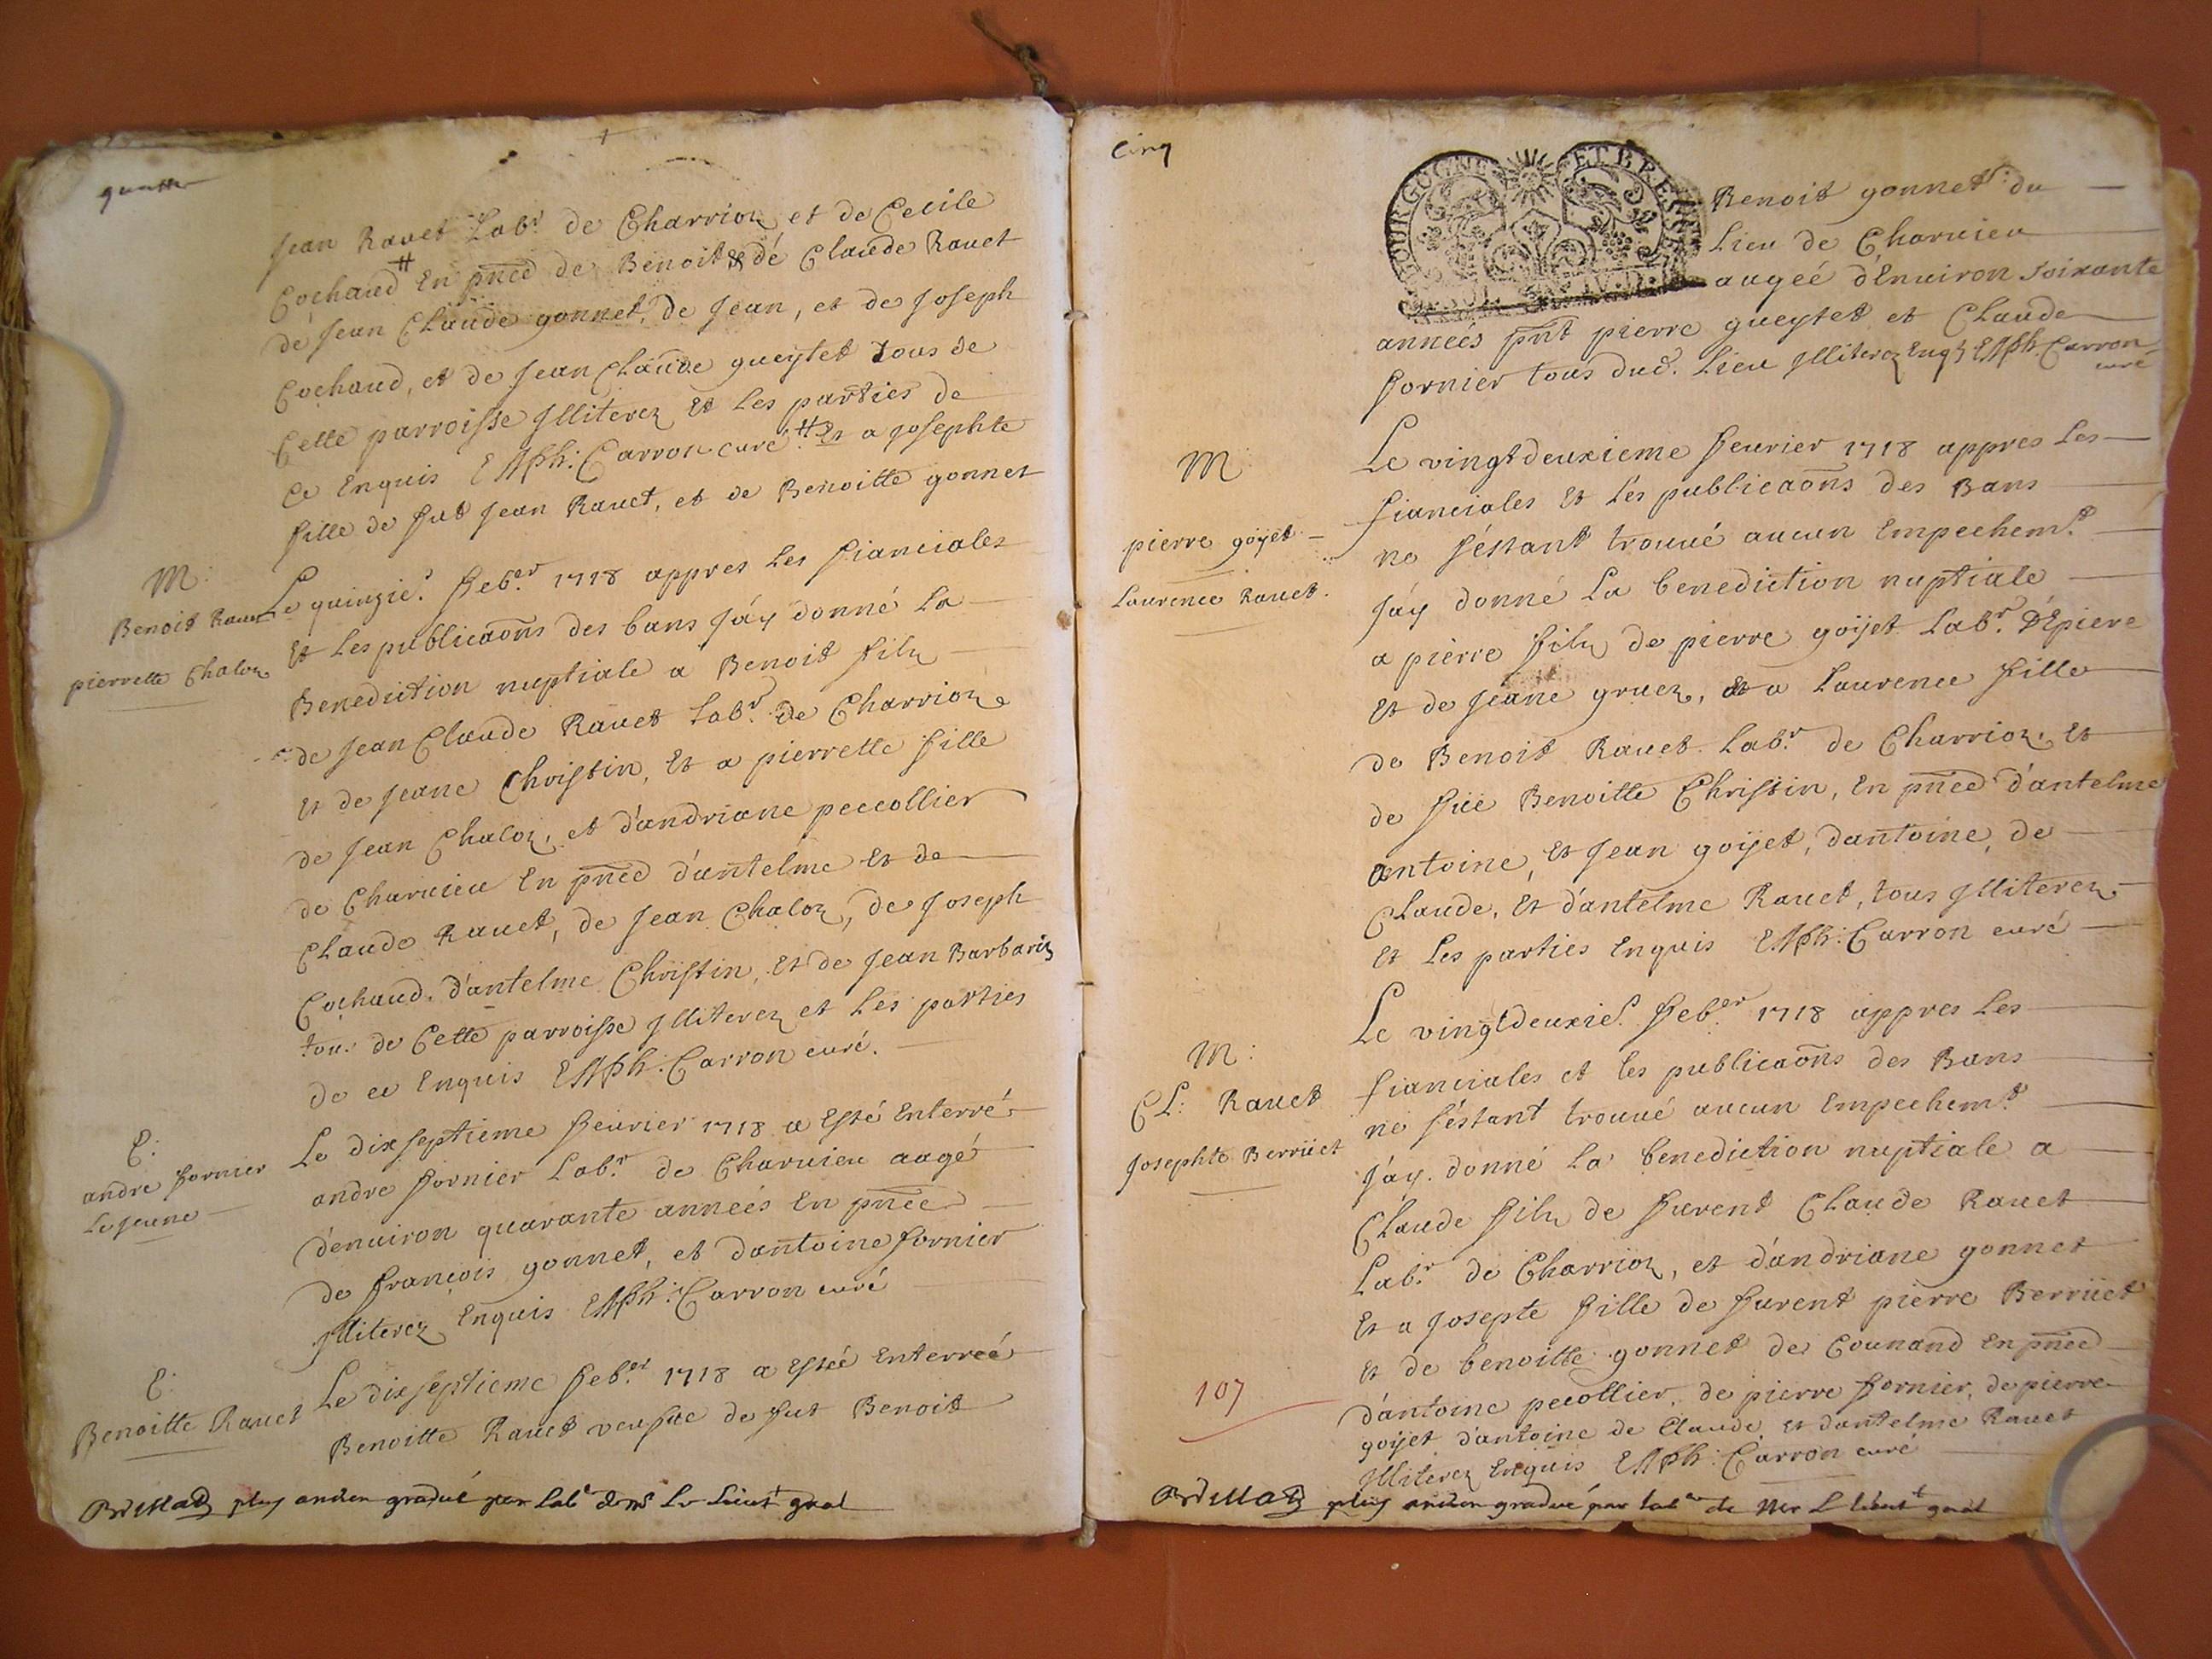 quattre
Jean Rauet Labr. de Charrion et de Cecile
Cochaud # En pnce de Benoit & de Claude Rauet
de Jean Claude gonnet, de Jean, et de Joseph
Cochaud, et de Jean Claude gueytet tous de
Cette parroisse Illiterez Et Les parties de
Ce Enquis Carron curé. # Et a Josephte
fille de fut Jean Rauet, et de Benoitte gonnet
M:
Benoit Rauet
pierrette Chalon
Le quinzie. feber 1718 appres Les fianciales
Et Les publicaons des bans J'ay donné La
Benediction nuptiale a Benoit filz
de Jean Claude Rauet Labr. de Charrion
Et de Jeane Christin, Et a pierrette fille
de Jean Chalon, et d'andriane peccollier
de Charuieu En pnce d'antelme Et de
Claude Rauet, de Jean Chalon, de Joseph
Cochaud, d'antelme Christin, Et de Jean Barbarin
tous de Cette parroisse Illiterez et Les parties
de ce Enquis Carron curé.
E:
andre fornier
Le jeune
Le dixseptieme feurier 1718 a Esté Enterré
andre fornier Labr. de Charuieu aagé
d'enuiron quarante années En pnce
de françois gonnet, et d'antoine fornier
Illiterez Enquis Carron curé
E:
Benoitte Rauet
Le dixseptieme feber 1718 a Estée Enterreé
Benoitte Rauet veufue de fut Benoit
plus ancien gradué par Labe de mr Le Lieut gnal
Cinq
BOURGOGNE ET BRESSE
Benoit gonnet du
Lieu de Charuieu
aageé d'Enuiron soixante
anneés pnt pierre gueytet et Claude
fornier tous dud. Lieu Illiterez Enqs Carron
curé
M
pierre goÿet
Laurence Rauet.
Le vingtdeuxieme feurier 1718 appres Les
fianciales Et Les publicaons des Bans
ne s'estant trouué aucun Empechemt.
J'ay donné La benediction nuptiale
a pierre filz de pierre goÿet Labr. D'Epiere
Et de Jeane gruez, Et a Laurence fille
de Benoit Rauet Labr. de Charrion, Et
de füe Benoitte Christin, En pnce d'antelme
antoine, Et Jean goÿet, d'antoine, de
Claude, Et d'antelme Rauet, tous Illiterez
Et Les parties Enquis Carron curé
M:
CL: Rauet
Josephte Berrüet
Le vingtdeuxie. feber 1718 appres Les
fianciales et les publicaons des Bans
ne s'estant trouué aucun Empechemt.
J'ay donné La benediction nuptiale a
Claude filz de furent Claude Rauet
Labr. de Charrion, et d'andriane gonnet
Et a Josepte fille de furent pierre Berrüet
Et de benoitte gonnet de Counand En pnce
d'antoine pecollier, de pierre fornier, de pierre
goÿet d'antoine de Claude Et d'antelme Rauet
Illiterez Enquis Carron curé
107
plus ancien gradué par Labe de Mr Le lieutt gnal